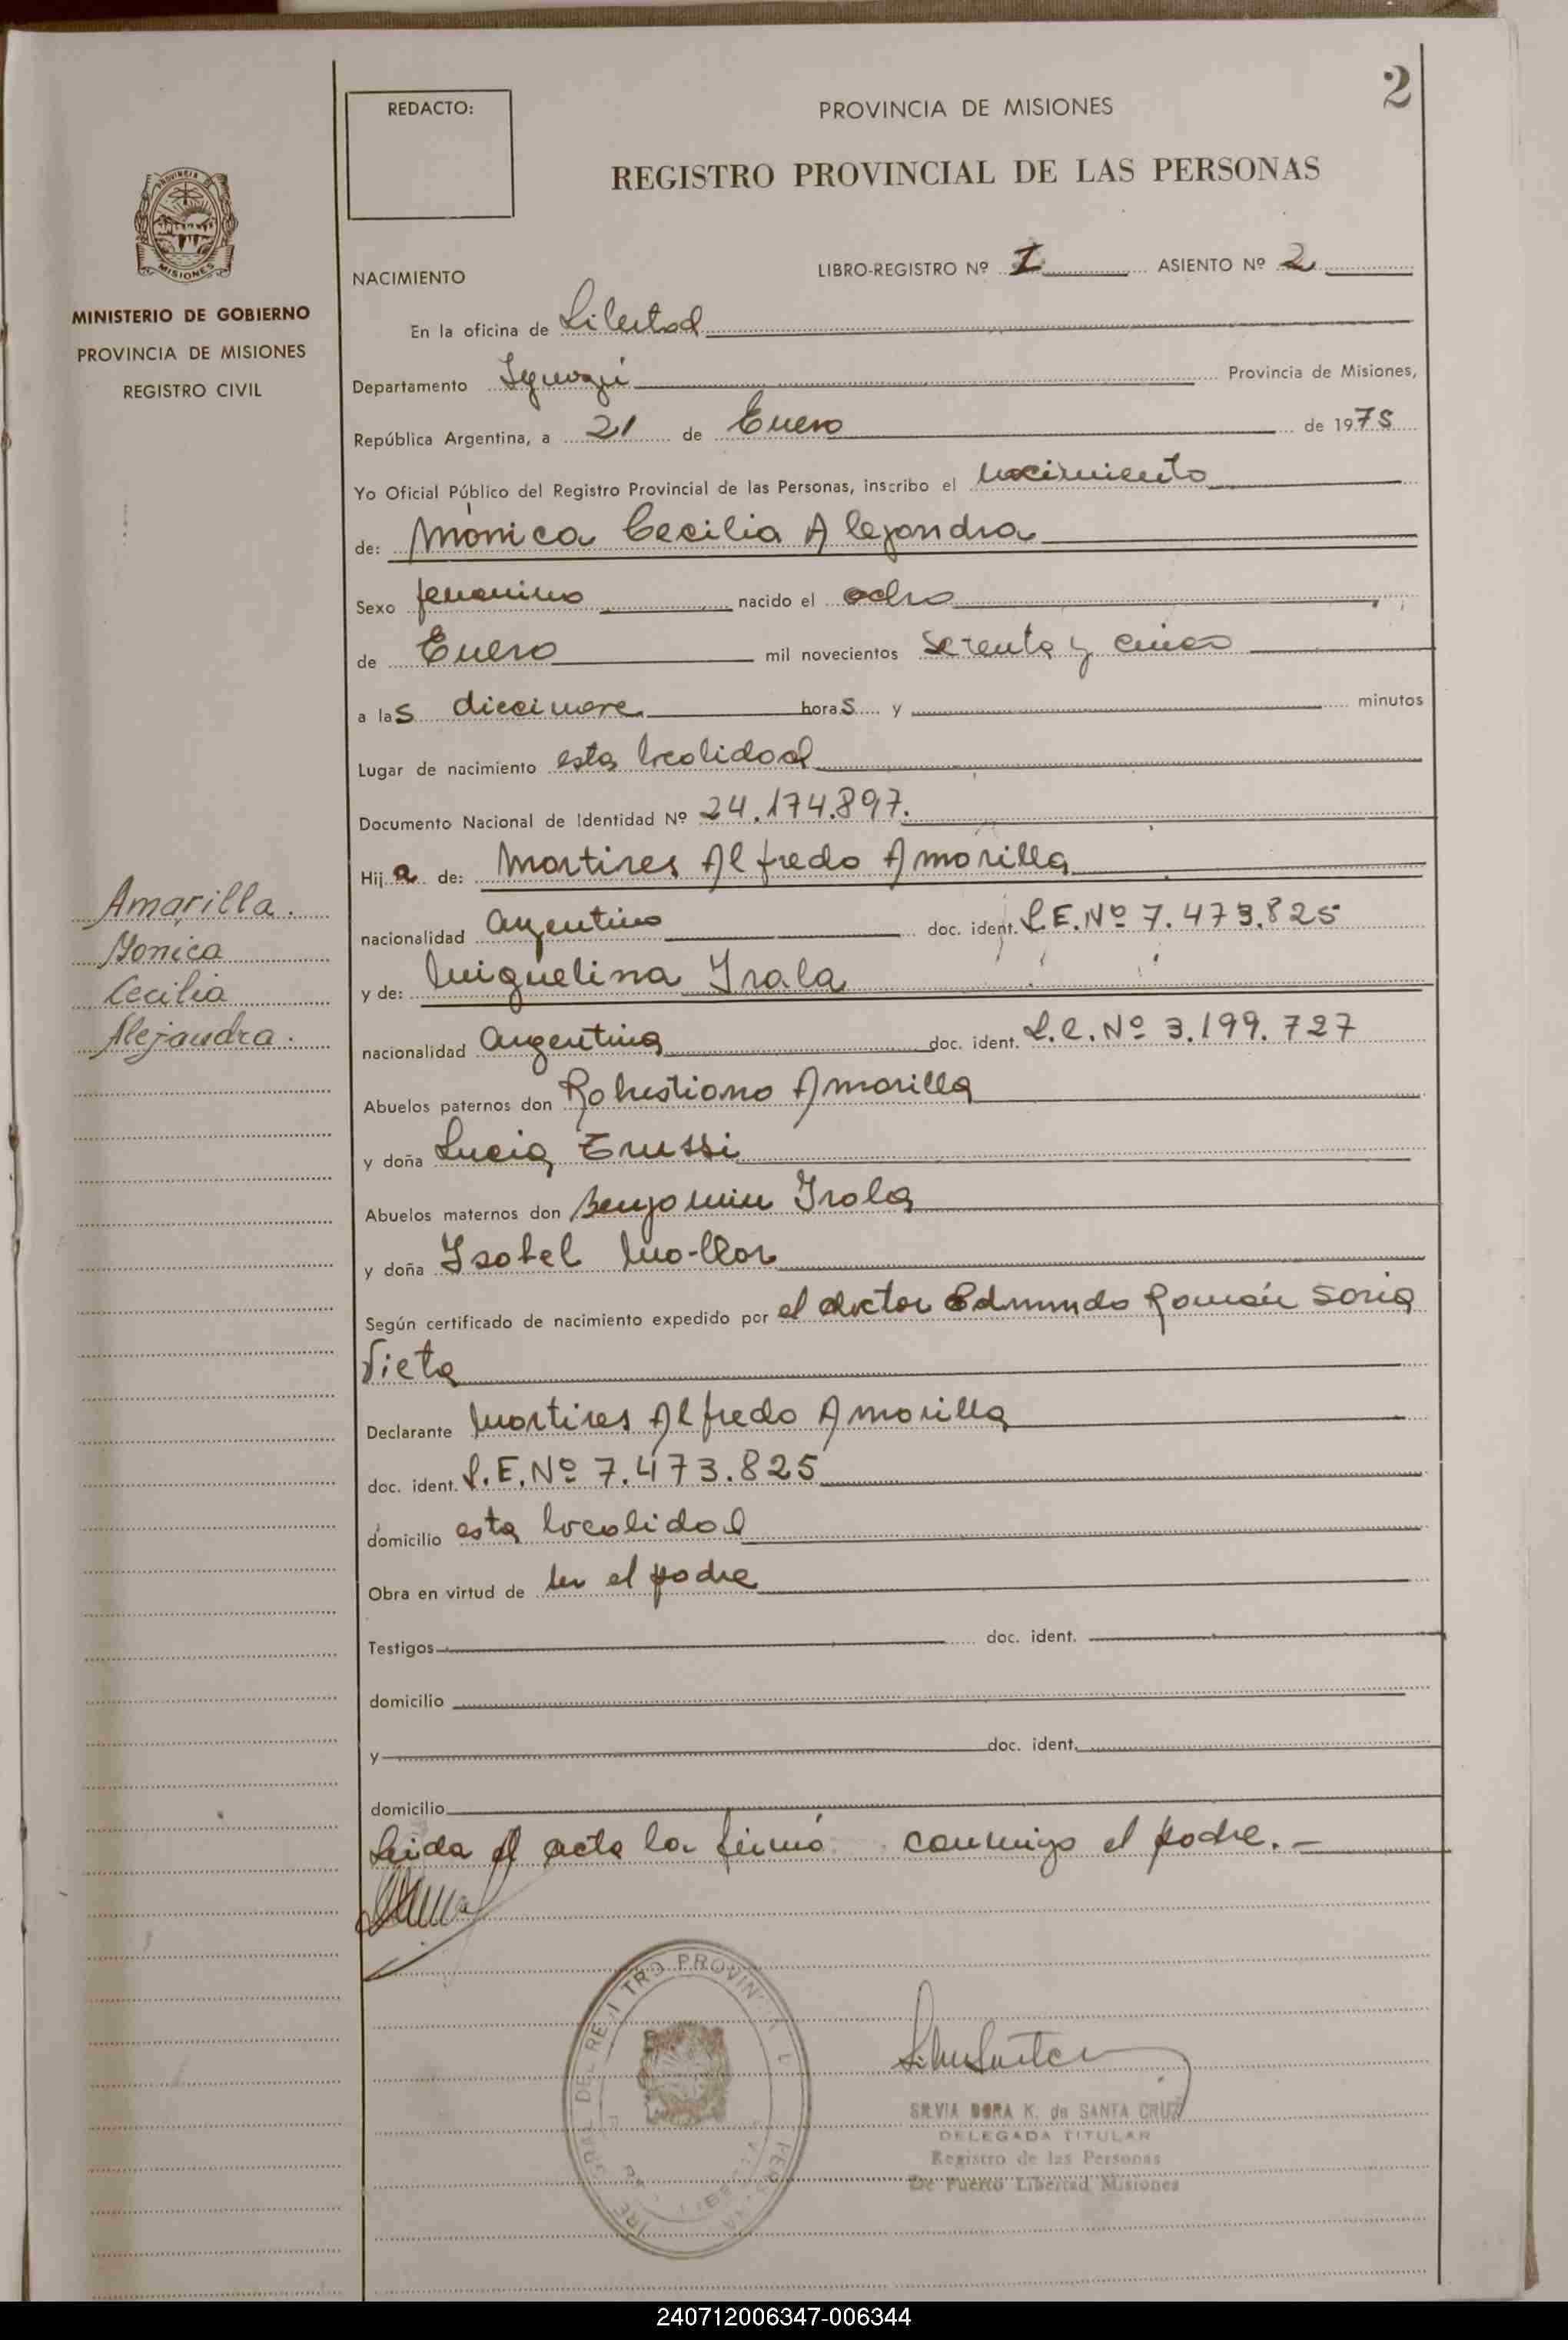 2
REDACTO:
PROVINCIA DE MISIONES
REGISTRO PROVINCIAL DE LAS PERSONAS
PROVINCIA DE
MISIONES
MINISTERIO DE GOBIERNO
PROVINCIA DE MISIONES
REGISTRO CIVIL
NACIMIENTO
LIBRO-REGISTRO Nº I ASIENTO Nº 2
En la oficina de Libertad
Departamento Iguazú Provincia de Misiones,
República Argentina, a 21 de Enero de 1975
Yo Oficial Público del Registro Provincial de las Personas, inscribo el nacimiento
de: Mónica Cecilia Alejandra
Sexo femenino nacido el ocho
de Enero mil novecientos setenta y cinco
a las diecinueve horas y minutos
Lugar de nacimiento esta localidad
Documento Nacional de Identidad Nº 24.174.897.
Hija de: Martires Alfredo Amarilla
nacionalidad argentino doc. ident. L.E.Nº 7.473.825
y de: Miguelina Irala
nacionalidad argentina doc. ident. L.C.Nº 3.199.727
Abuelos paternos don Robustiano Amarilla
y doña Lucia
Abuelos maternos don Benjamin Irala
y doña Isabel
Según certificado de nacimiento expedido por el doctor Edmundo Román Soria
Vieta
Declarante Martires Alfredo Amarilla
doc. ident. L.E.Nº 7.473.825
domicilio esta localidad
Obra en virtud de ser el padre
Testigos doc. ident.
domicilio
y doc. ident.
domicilio
Leida el acta la firmó conmigo el padre.-
Amarilla.
Monica
Cecilia
Alejandra.
SILVIA DORA K. de SANTA CRUZ
DELEGADA TITULAR
Registro de las Personas
De Puerto Libertad Misiones
240712006347-006344